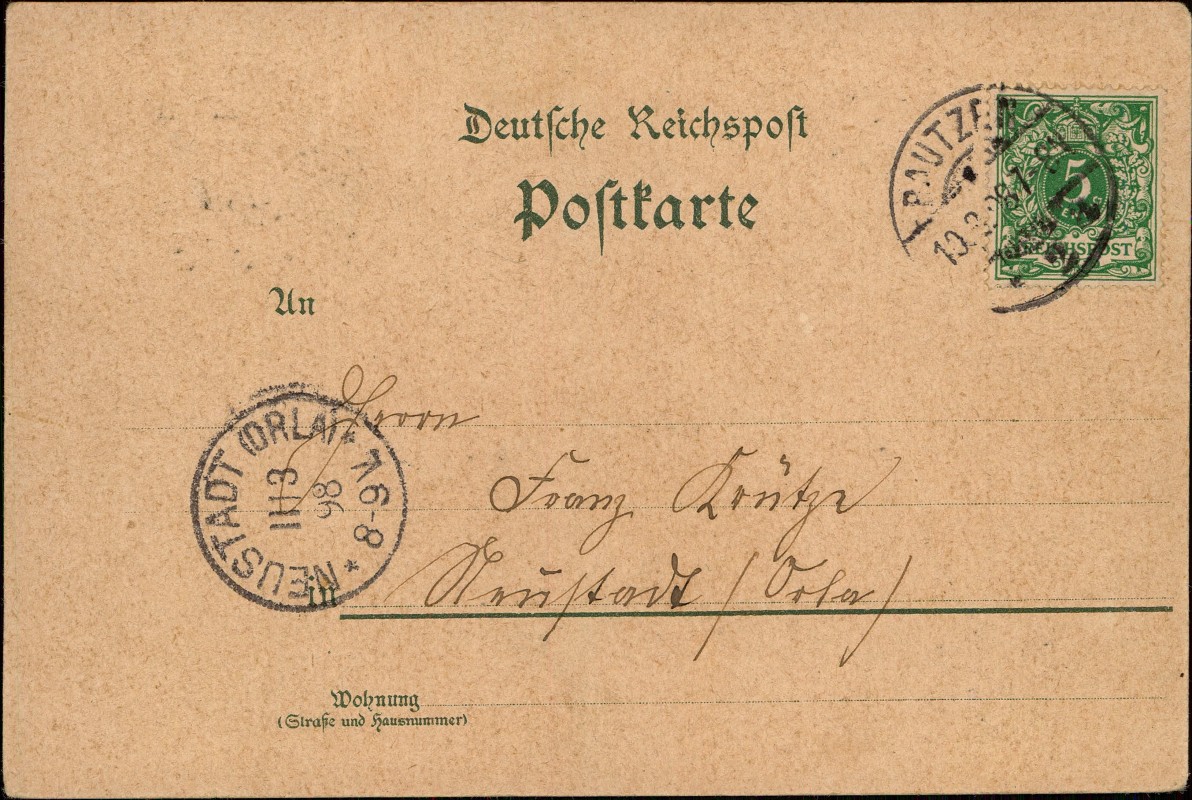 Deutsche Reichspost
Postkarte
BAUTZEN
10.3.98.7-8
5
REICHSPOST
An
NEUSTADT (ORLA) * V.6-8 *
11 3
98
Herrn
Franz Krütze
in Neustadt (Orla)
Wohnung
(Straße und Hausnummer)